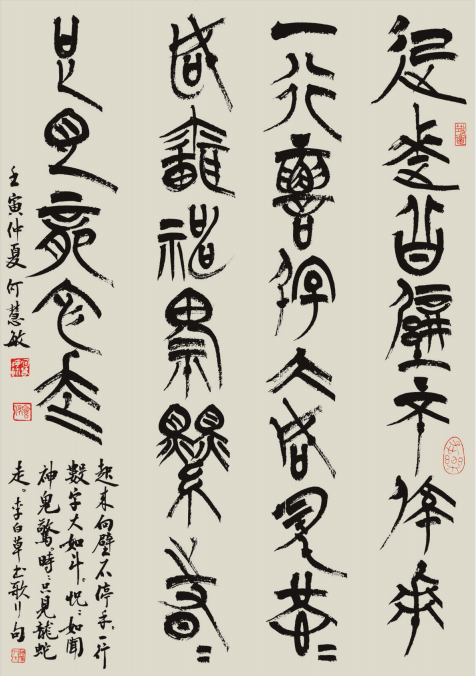 起來向壁不停手
一行數字大如斗恍〻
如聞神鬼驚時〻
只見龍蛇走
壬寅仲夏何慧敏
起来向壁不停手、一行
數字大如斗。恍〻如聞
神鬼驚。時〻只見龍蛇
走。李白草书歌行句